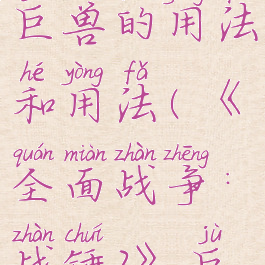 巨兽的用法
hé yòng fǎ
和用法(《
quán miàn zhàn zhēng
全面战争:
zhàn chuí jù
战锤2》巨